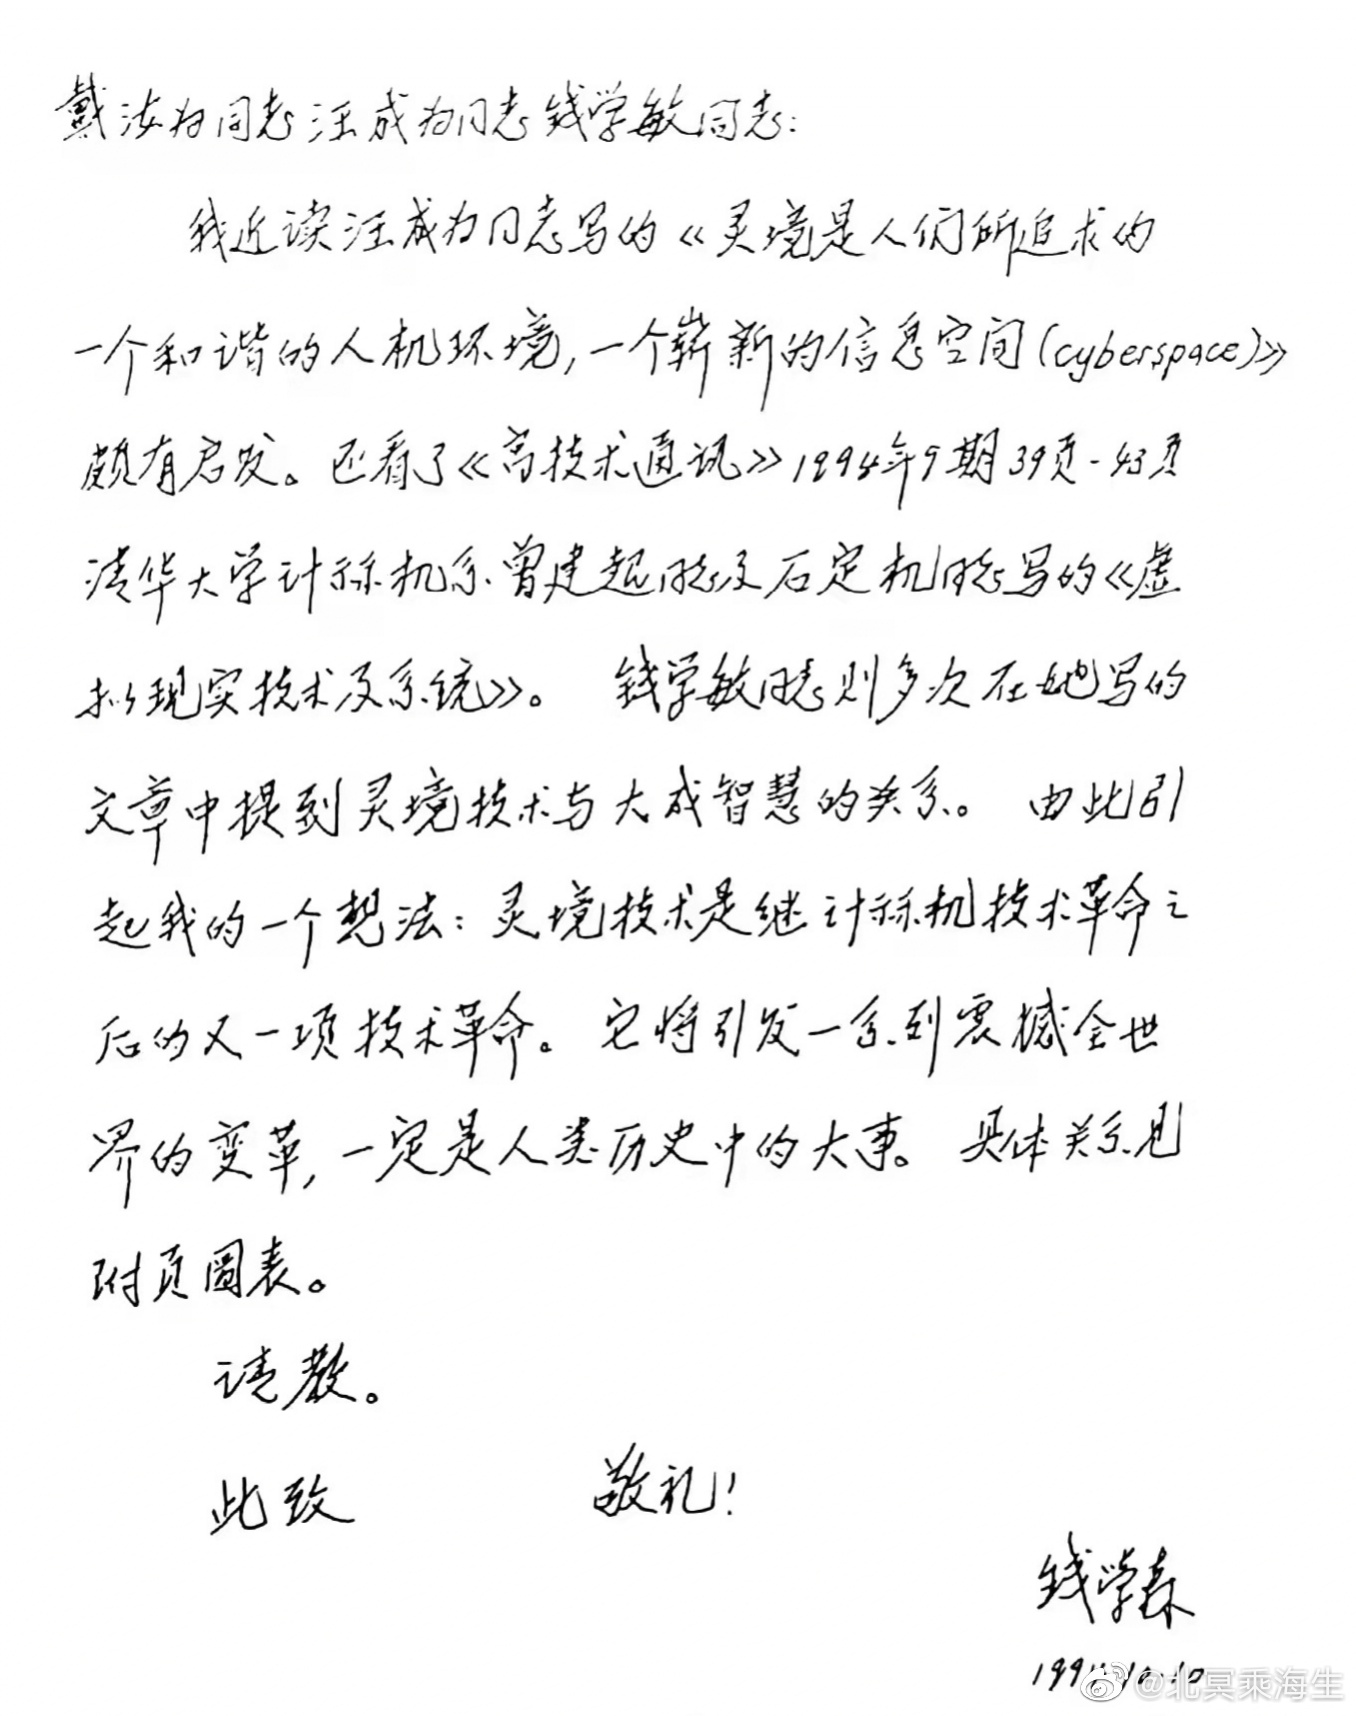 戴汝为同志汪成为同志钱学敏同志:
我近读汪成为同志写的《灵境是人们所追求的
一个和谐的人机环境,一个崭新的信息空间(cyberspace)》
颇有启发。还看了《高技术通讯》1994年9期39页-43页
清华大学计祘机系曾建超同志及石定机同志写的《虚
拟现实技术及系统》。 钱学敏同志则多次在她写的
文章中提到灵境技术与大成智慧的关系。 由此引
起我的一个想法:灵境技术是继计祘机技术革命之
后的又一项技术革命。它将引发一系列震撼全世
界的变革,一定是人类历史中的大事。 具体关系见
附页圖表。
请教。
此致 敬礼!
钱学森
1994.10.10
@北冥乘海生